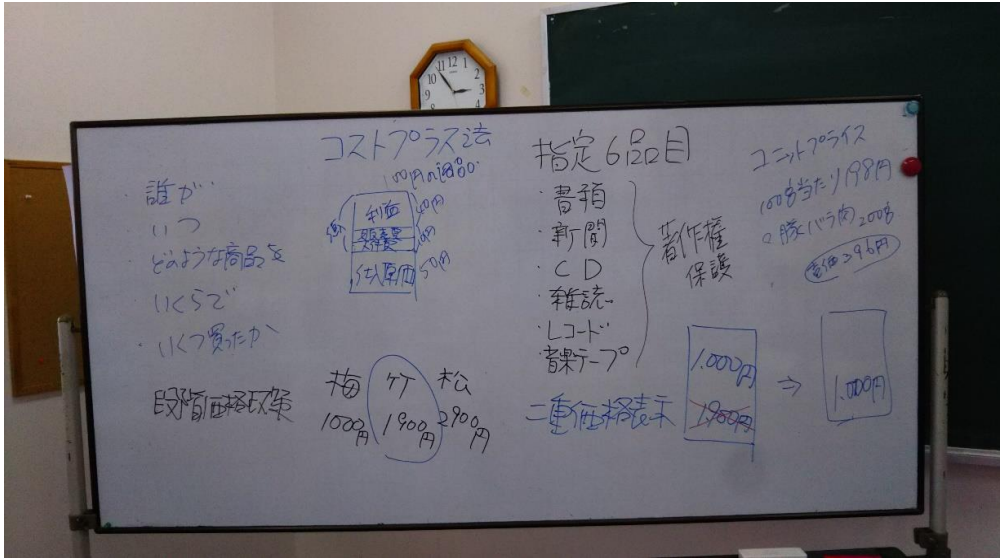 11 12 1
10 2
9 3
8 4
・誰が
いつ
・どのような商品を
いくらで
・いくつ買ったか
コストプラス法
100円の商品
利益 40円
人件費
仕入原価 50円
段階価格政策
梅 竹 松
1000円 1900円 2900円
指定6品目
・書籍
・新聞
・CD
・雑誌
・レコード
・音楽テープ
著作権
保護
二重価格表示
1.000円
1900円
⇒
1.000円
ユニットプライス
100g当たり198円
豚バラ肉200g
売価396円